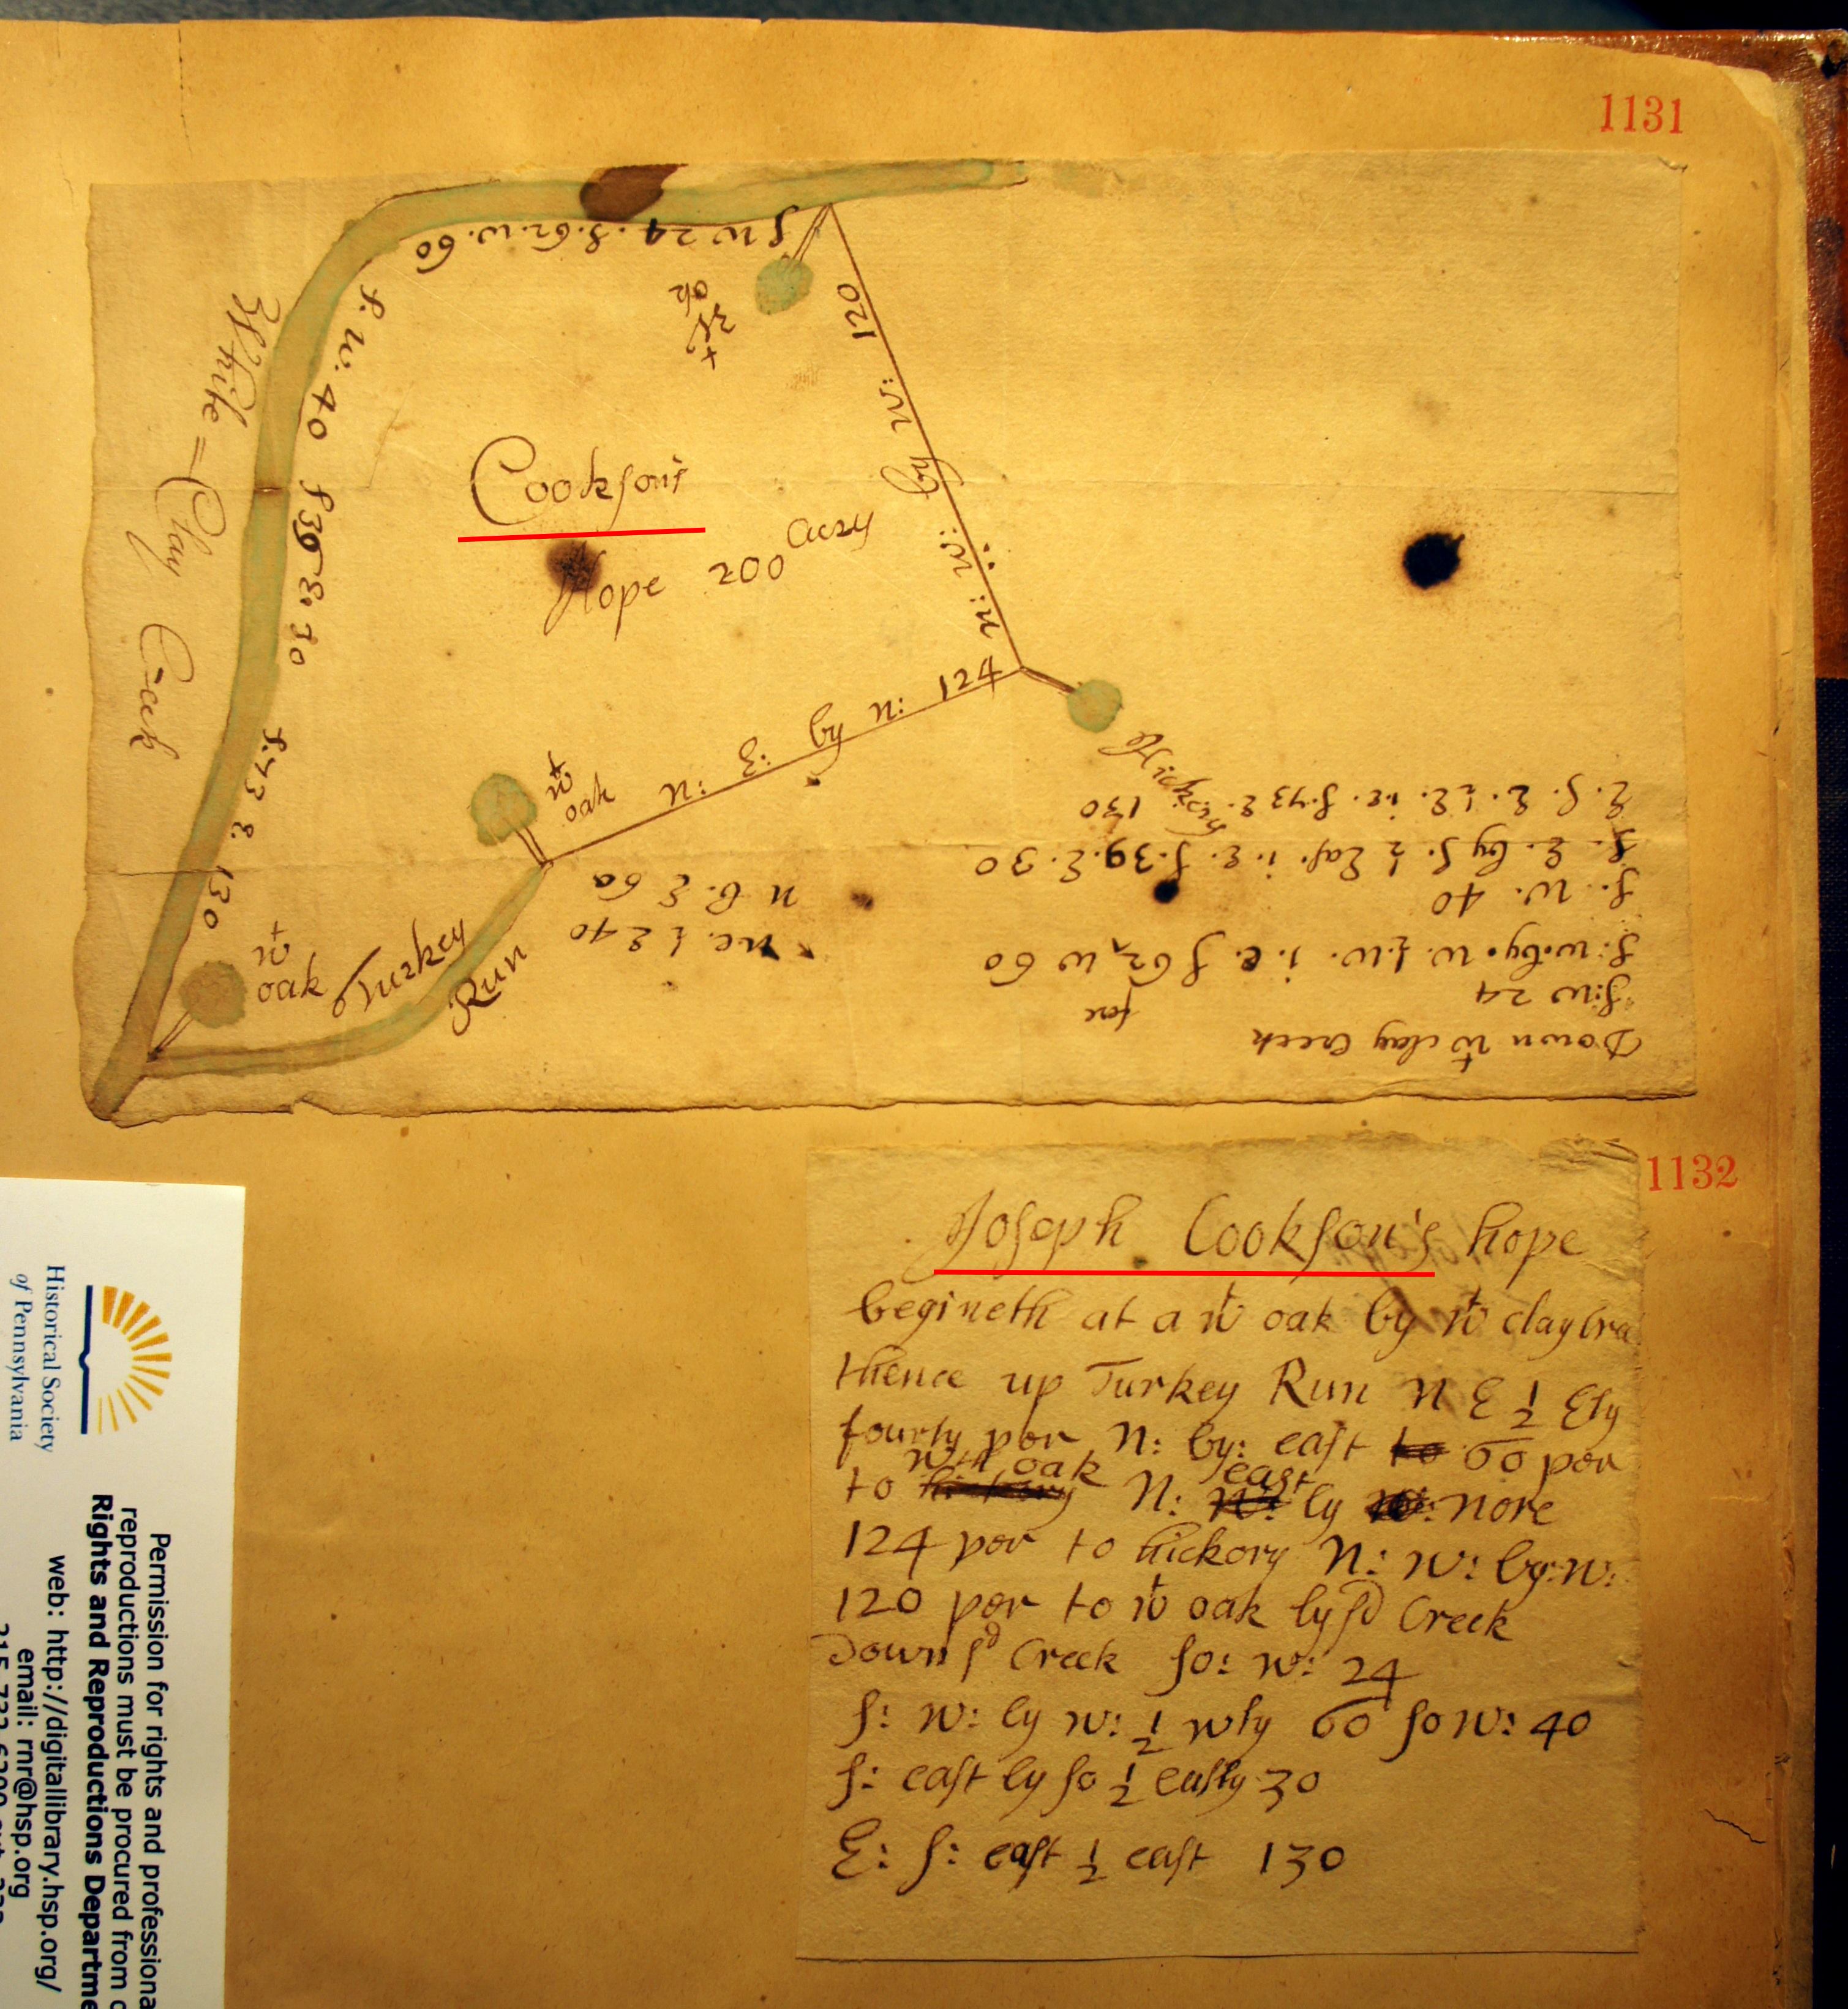 1131
S W 24. S. 62. W. 60
wt
ok
120
W:
by
W:
N:
S. W. 40
S 39 E. 30
S. 73 E 130
White = Clay Creek
Cookson's
Hope 200 Acrs
N: E: by N: 124
Hickory
wt
oak
wt
oak
Turkey
Run
N B. E 60
NE. ½ E 40
Down wt Clay Creek
S:W 24
S:W. by. W. ½. W. i. e. S 62 W 60
S. W. 40
S. E. by S. ½ Eas. i. E. S. 39. E. 30
E. S. E. ½ E. i. e. S. 73 E. 130
1132
Joseph Cookson's hope
begineth at a wt oak by wt clay
thence up Turkey Run N E ½ Ely
fourty per N: by: east to 60 per
with oak east
to hickory N: W: by W: nore
124 per to hickory N: W: by: W:
120 per to wt oak by sd Creek
Down sd Creek So: W: 24
S: W: by W: ½ wly 60 So W: 40
S: east by So ½ easty 30
E: S: east ½ east 130
Historical Society
of Pennsylvania
Permission for rights and professiona
reproductions must be procured from
Rights and Reproductions Departme
web: http://digitallibrary.hsp.org/
email: rnr@hsp.org